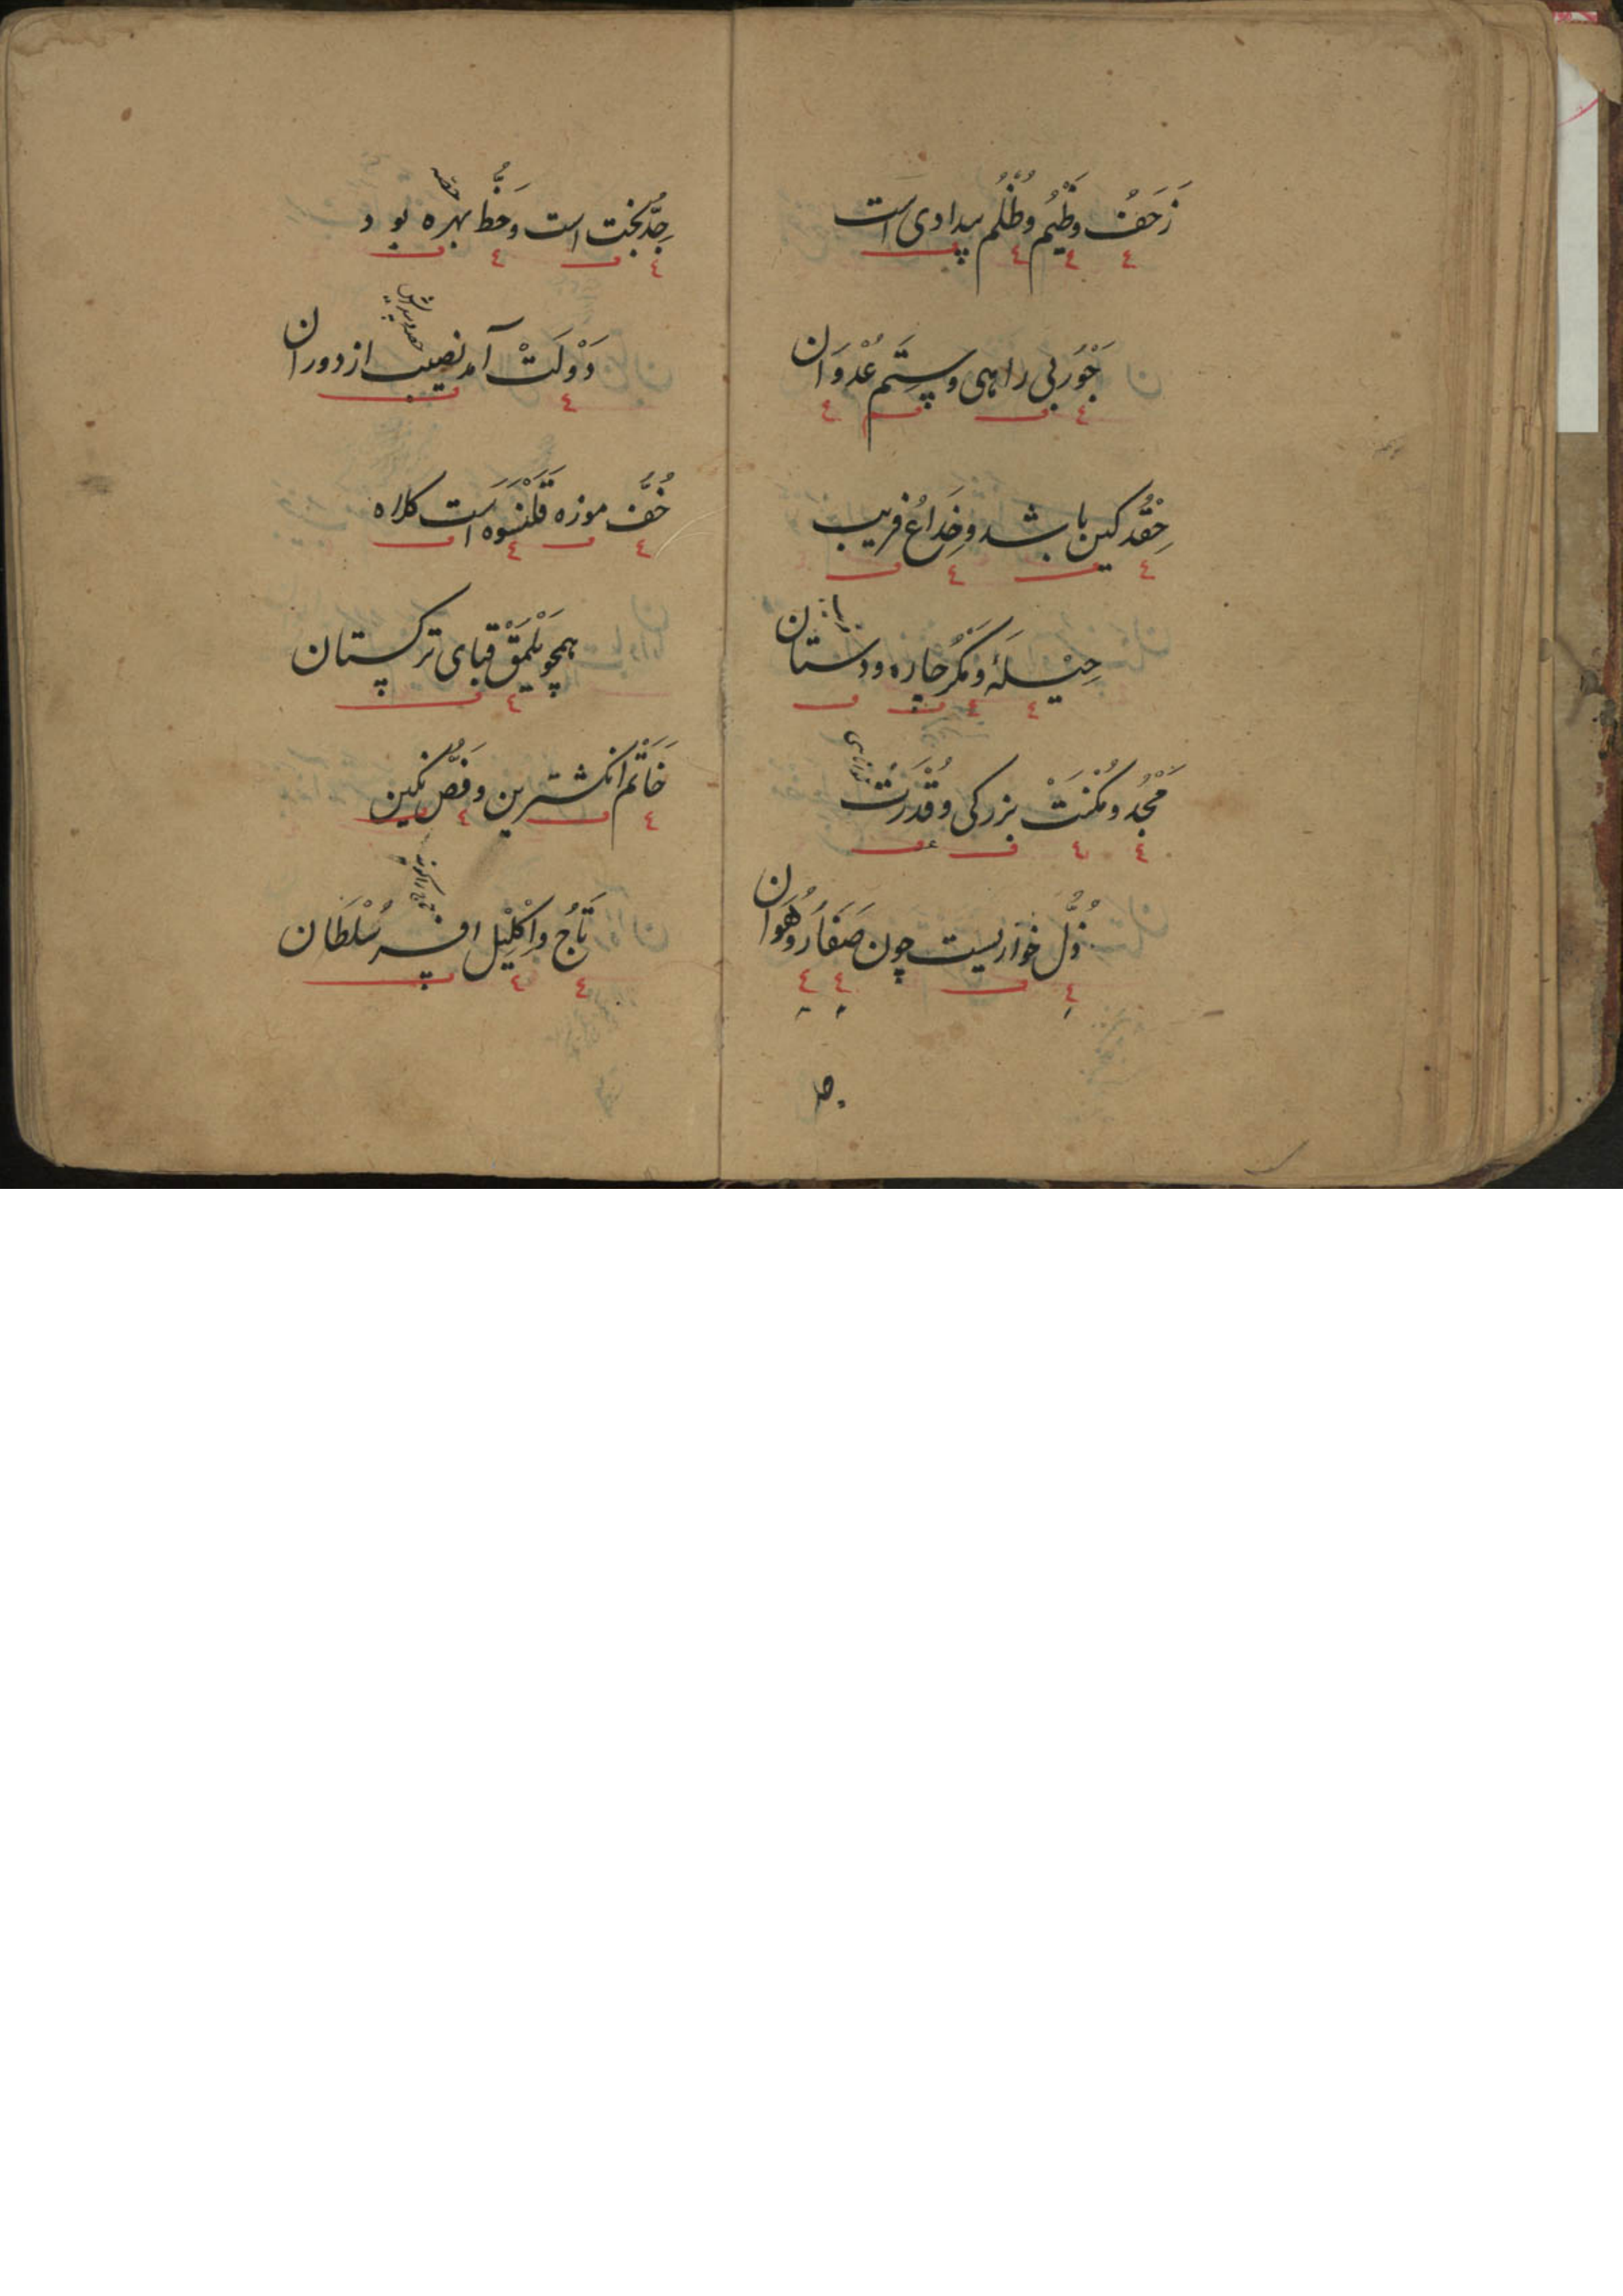 زَحَفُ وَظَیْمُ وُظُلْم بیدادی است
جَوْرُ بی راهی و ستَم عُدْوَان
حِقْد کین باشد و خِدَاعُ فریب
حِیْلَهٔ و مَکْرُ چاره و دستان
مَجْدُ و مُکْنَتْ بزرکی وُ قُدْرَتْ
ذُلّ خواریست چون صَغَارُ و هَوان
جِدُّ بخت است وَ حَظُّ بهره بود
حصه
دَوْلَتْ آمد نصیب از دوران
خُفُّ موزه قَلَنْسَوَه است کلاه
همچو یَلْمَقْ قبای ترکستان
خَاتَم انکشترین و فَصُّ نکین
تَاجُ و اِکْلِیْل افسر سُلْطَان